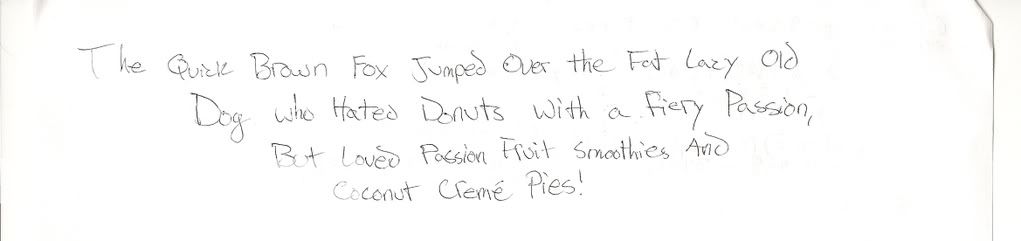 The Quick Brown Fox Jumped Over the Fat Lazy Old
Dog who Hated Donuts With a Fiery Passion,
But Loved Passion Fruit Smoothies And
Coconut Cremé Pies!